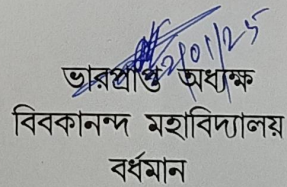 2/01/25
ভারপ্রাপ্ত অধ্যক্ষ
বিবেকানন্দ মহাবিদ্যালয়
বর্ধমান